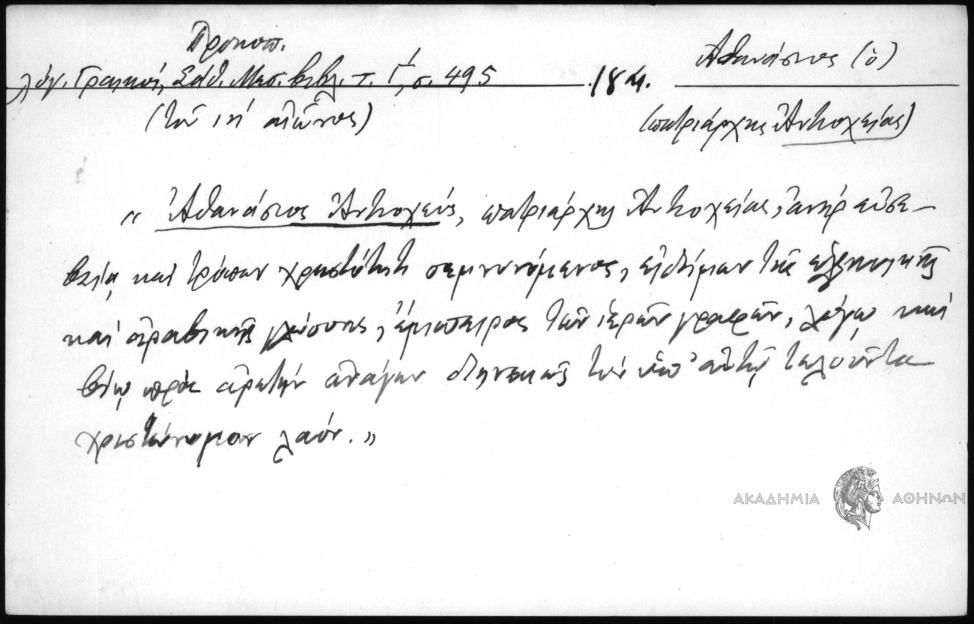 Προκοπ.
λόγ. Γραικοί, Σάθ. Μεσ. βιβλ. τ. Γ΄, σ. 495
(τοῦ ιη΄ αἰῶνος)
18 μ.
Ἀθανάσιος (ὁ)
(πατριάρχης Ἀντιοχείας)
« Ἀθανάσιος Ἀντιοχεύς, πατριάρχης Ἀντιοχείας, ἀνὴρ εὐσε-
βείᾳ καὶ τρόπων χρηστότητι σεμνυνόμενος, εἰδήμων τῆς ἑλληνικῆς
καὶ ἀραβικῆς γλώσσης, ἔμπειρος τῶν ἱερῶν γραφῶν, λόγῳ καὶ
βίῳ πρὸς ἀρετὴν ἀνάγων διηνεκῶς τὸν ὑπ' αὐτῷ τελοῦντα
χριστώνυμον λαόν. »
ΑΚΑΔΗΜΙΑ ΑΘΗΝΩΝ